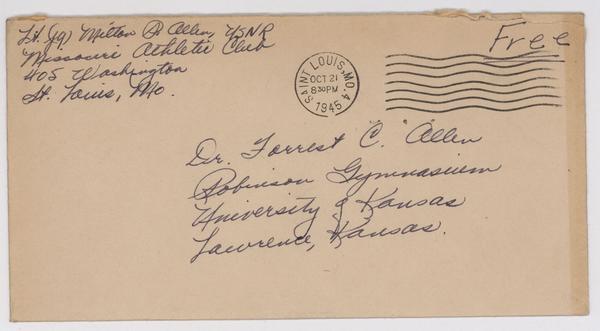 Lt. (jg) Milton P. Allen, USNR
Missouri Athletic Club
405 Washington
St. Louis, Mo.
Free
SAINT LOUIS, MO. 4
OCT 21
8 30 PM
1945
Dr. Forrest "C" Allen
Robinson Gymnasium
University of Kansas
Lawrence, Kansas.